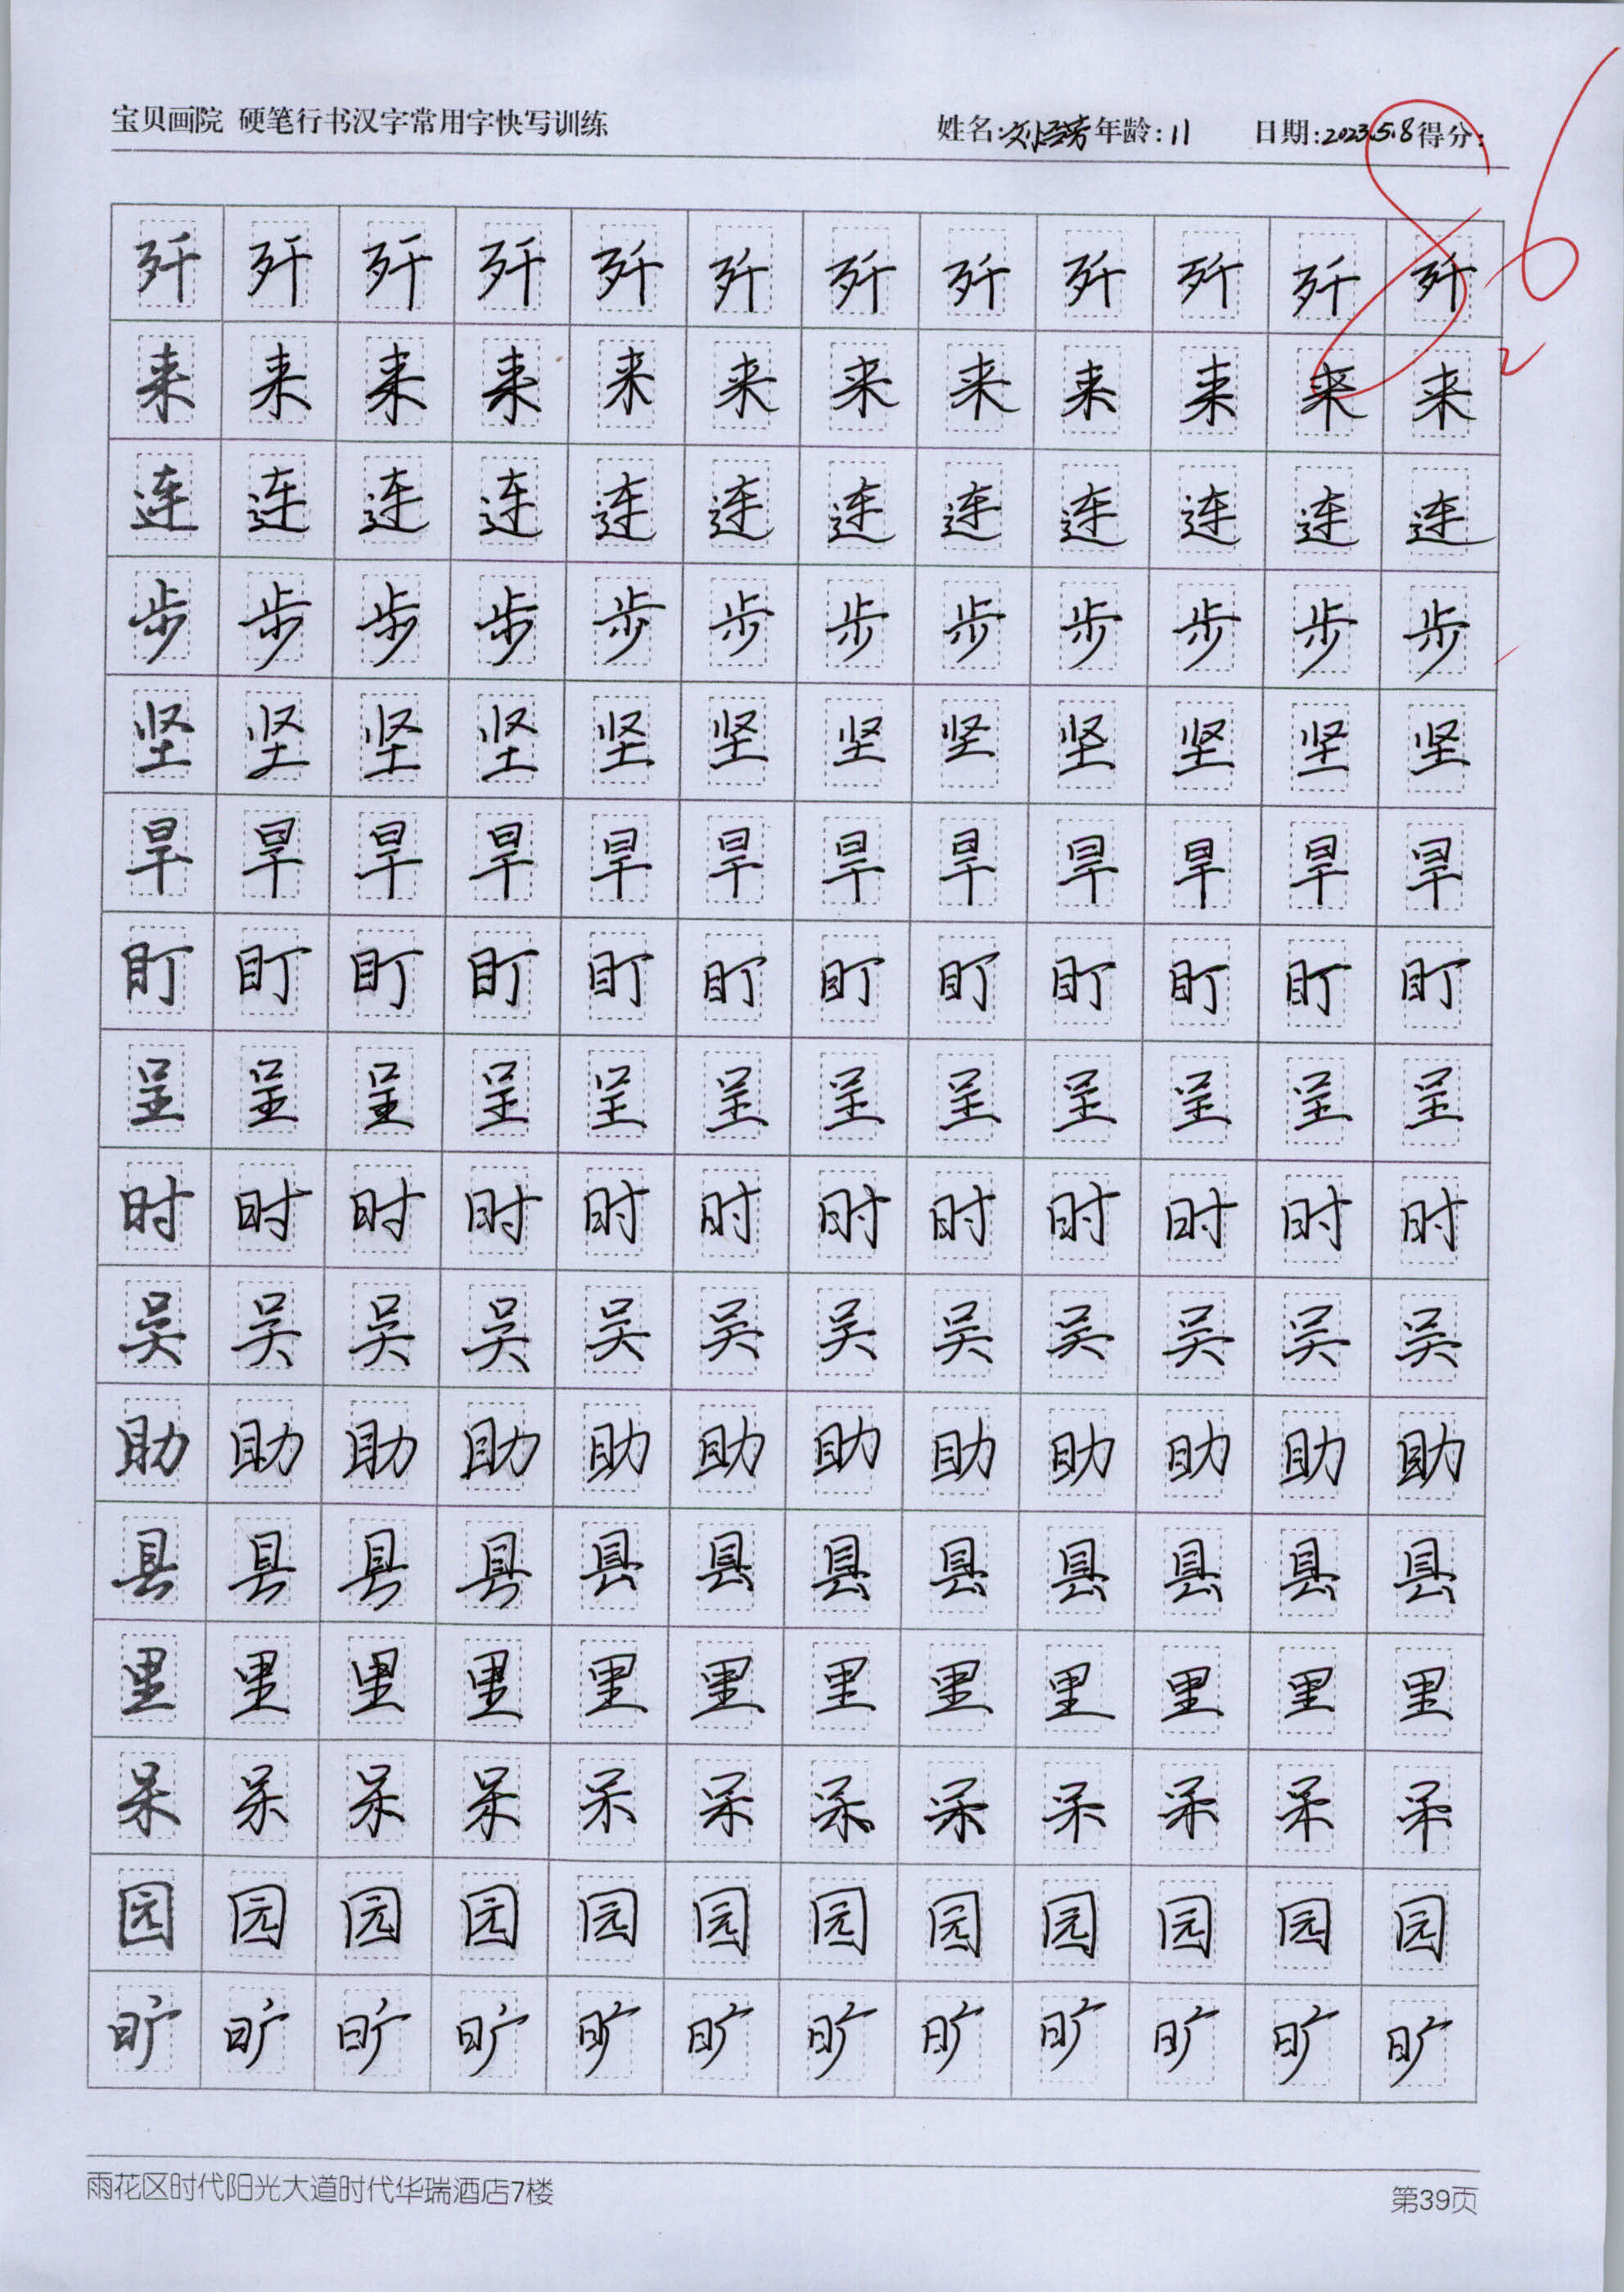 宝贝画院 硬笔行书汉字常用字快写训练 姓名: 年龄:11 日期:2023.5.8 得分: 86
歼 歼 歼 歼 歼 歼 歼 歼 歼 歼 歼 歼
来 来 来 来 来 来 来 来 来 来 来 来
连 连 连 连 连 连 连 连 连 连 连 连
步 步 步 步 步 步 步 步 步 步 步 步
坚 坚 坚 坚 坚 坚 坚 坚 坚 坚 坚 坚
旱 旱 旱 旱 旱 旱 旱 旱 旱 旱 旱 旱
盯 盯 盯 盯 盯 盯 盯 盯 盯 盯 盯 盯
呈 呈 呈 呈 呈 呈 呈 呈 呈 呈 呈 呈
时 时 时 时 时 时 时 时 时 时 时 时
吴 吴 吴 吴 吴 吴 吴 吴 吴 吴 吴 吴
助 助 助 助 助 助 助 助 助 助 助 助
县 县 县 县 县 县 县 县 县 县 县 县
里 里 里 里 里 里 里 里 里 里 里 里
呆 呆 呆 呆 呆 呆 呆 呆 呆 呆 呆 呆
园 园 园 园 园 园 园 园 园 园 园 园
旷 旷 旷 旷 旷 旷 旷 旷 旷 旷 旷 旷
雨花区时代阳光大道时代华瑞酒店7楼 第39页